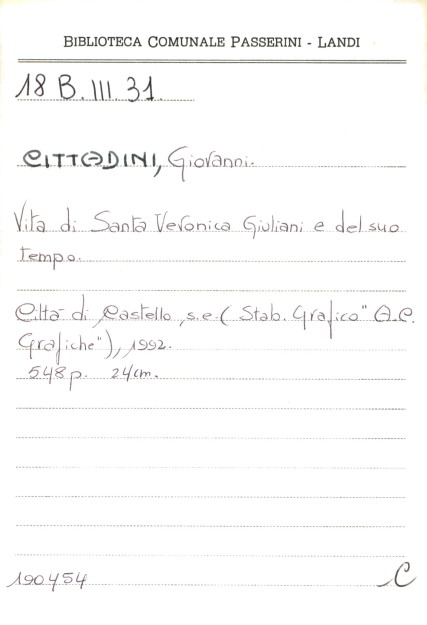 BIBLIOTECA COMUNALE PASSERINI - LANDI
18 B. III. 31.
CITTADINI, Giovanni.
Vita di Santa Veronica Giuliani e del suo
tempo.
Città di Castello, s.e. ( Stab. Grafico "A.C.
Grafiche"), 1992.
548 p. 24 cm.
190454
C